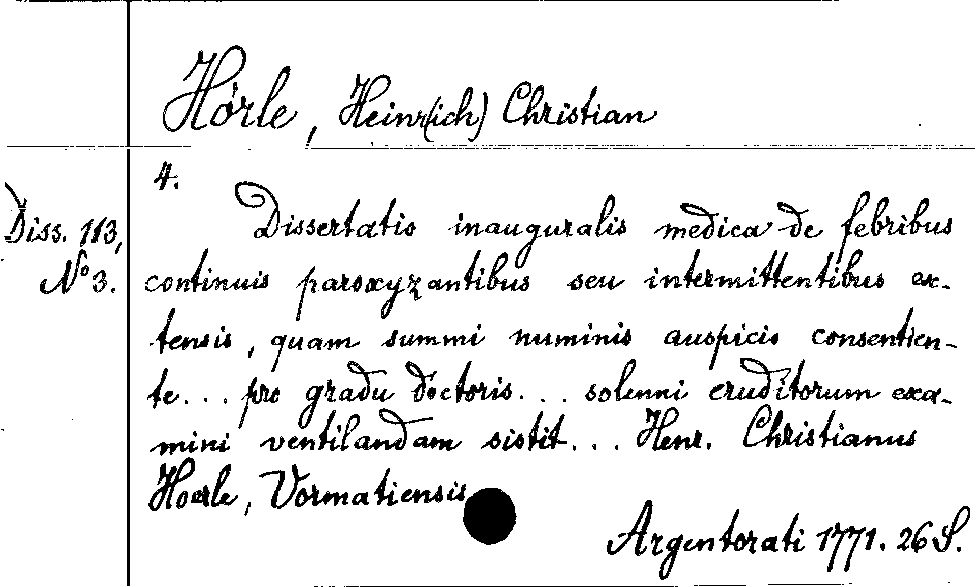 Hörle, Heinr(ich) Christian
4.
Diss. 113,
N° 3.
Dissertatio inauguralis medica de febribus
continuis paroxyzantibus seu intermittentibus ex-
tensis, quam summi numinis auspicio consentien-
te... pro gradu doctoris... solenni eruditorum exa-
mini ventilandam sistit... Henr. Christianus
Hoerle, Vormatiensis
Argentorati 1771. 26 S.